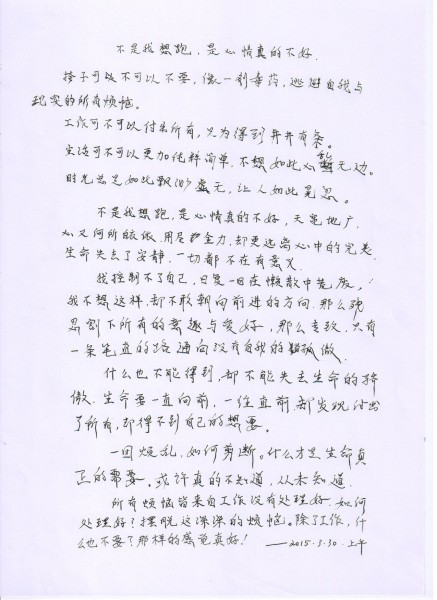 不是我想跑,是心情真的不好.
孩子可以不可以不要,像一剂毒药,逃避自我与
现实的所有烦恼。
工作可不可以付出所有,只为得到井井有条。
生活可不可以更加纯粹简单,不想如此心乱无边。
时光总是如此飘渺虚无,让人如此晃忽。
不是我想跑,是心情真的不好,天宽地广,
心又何所依傲.用尽全力,却更远离心中的完美.
生命失去了安静,一切都不在有意义.
我控制不了自己,日复一日在懒散中荒废,
我不想这样,却不敢朝向前进的方向.那么残
忍割下所有的意趣与爱好,那么专致.只有
一条笔直的路通向没有自我的孤傲.
什么也不能得到,却不能失去生命的骄
傲.生命要一直向前,一往直前,却发现付出
了所有,却得不到自己的想要。
一回烦乱,如何剪断。什么才是生命真
正的需要。或许真的不知道,从未知道.
所有烦恼皆来自工作没有处理好.如何
处理好?摆脱这深深的烦恼。除了工作,什
么也不要?那样的感觉真好! ——2015.3.30.上午